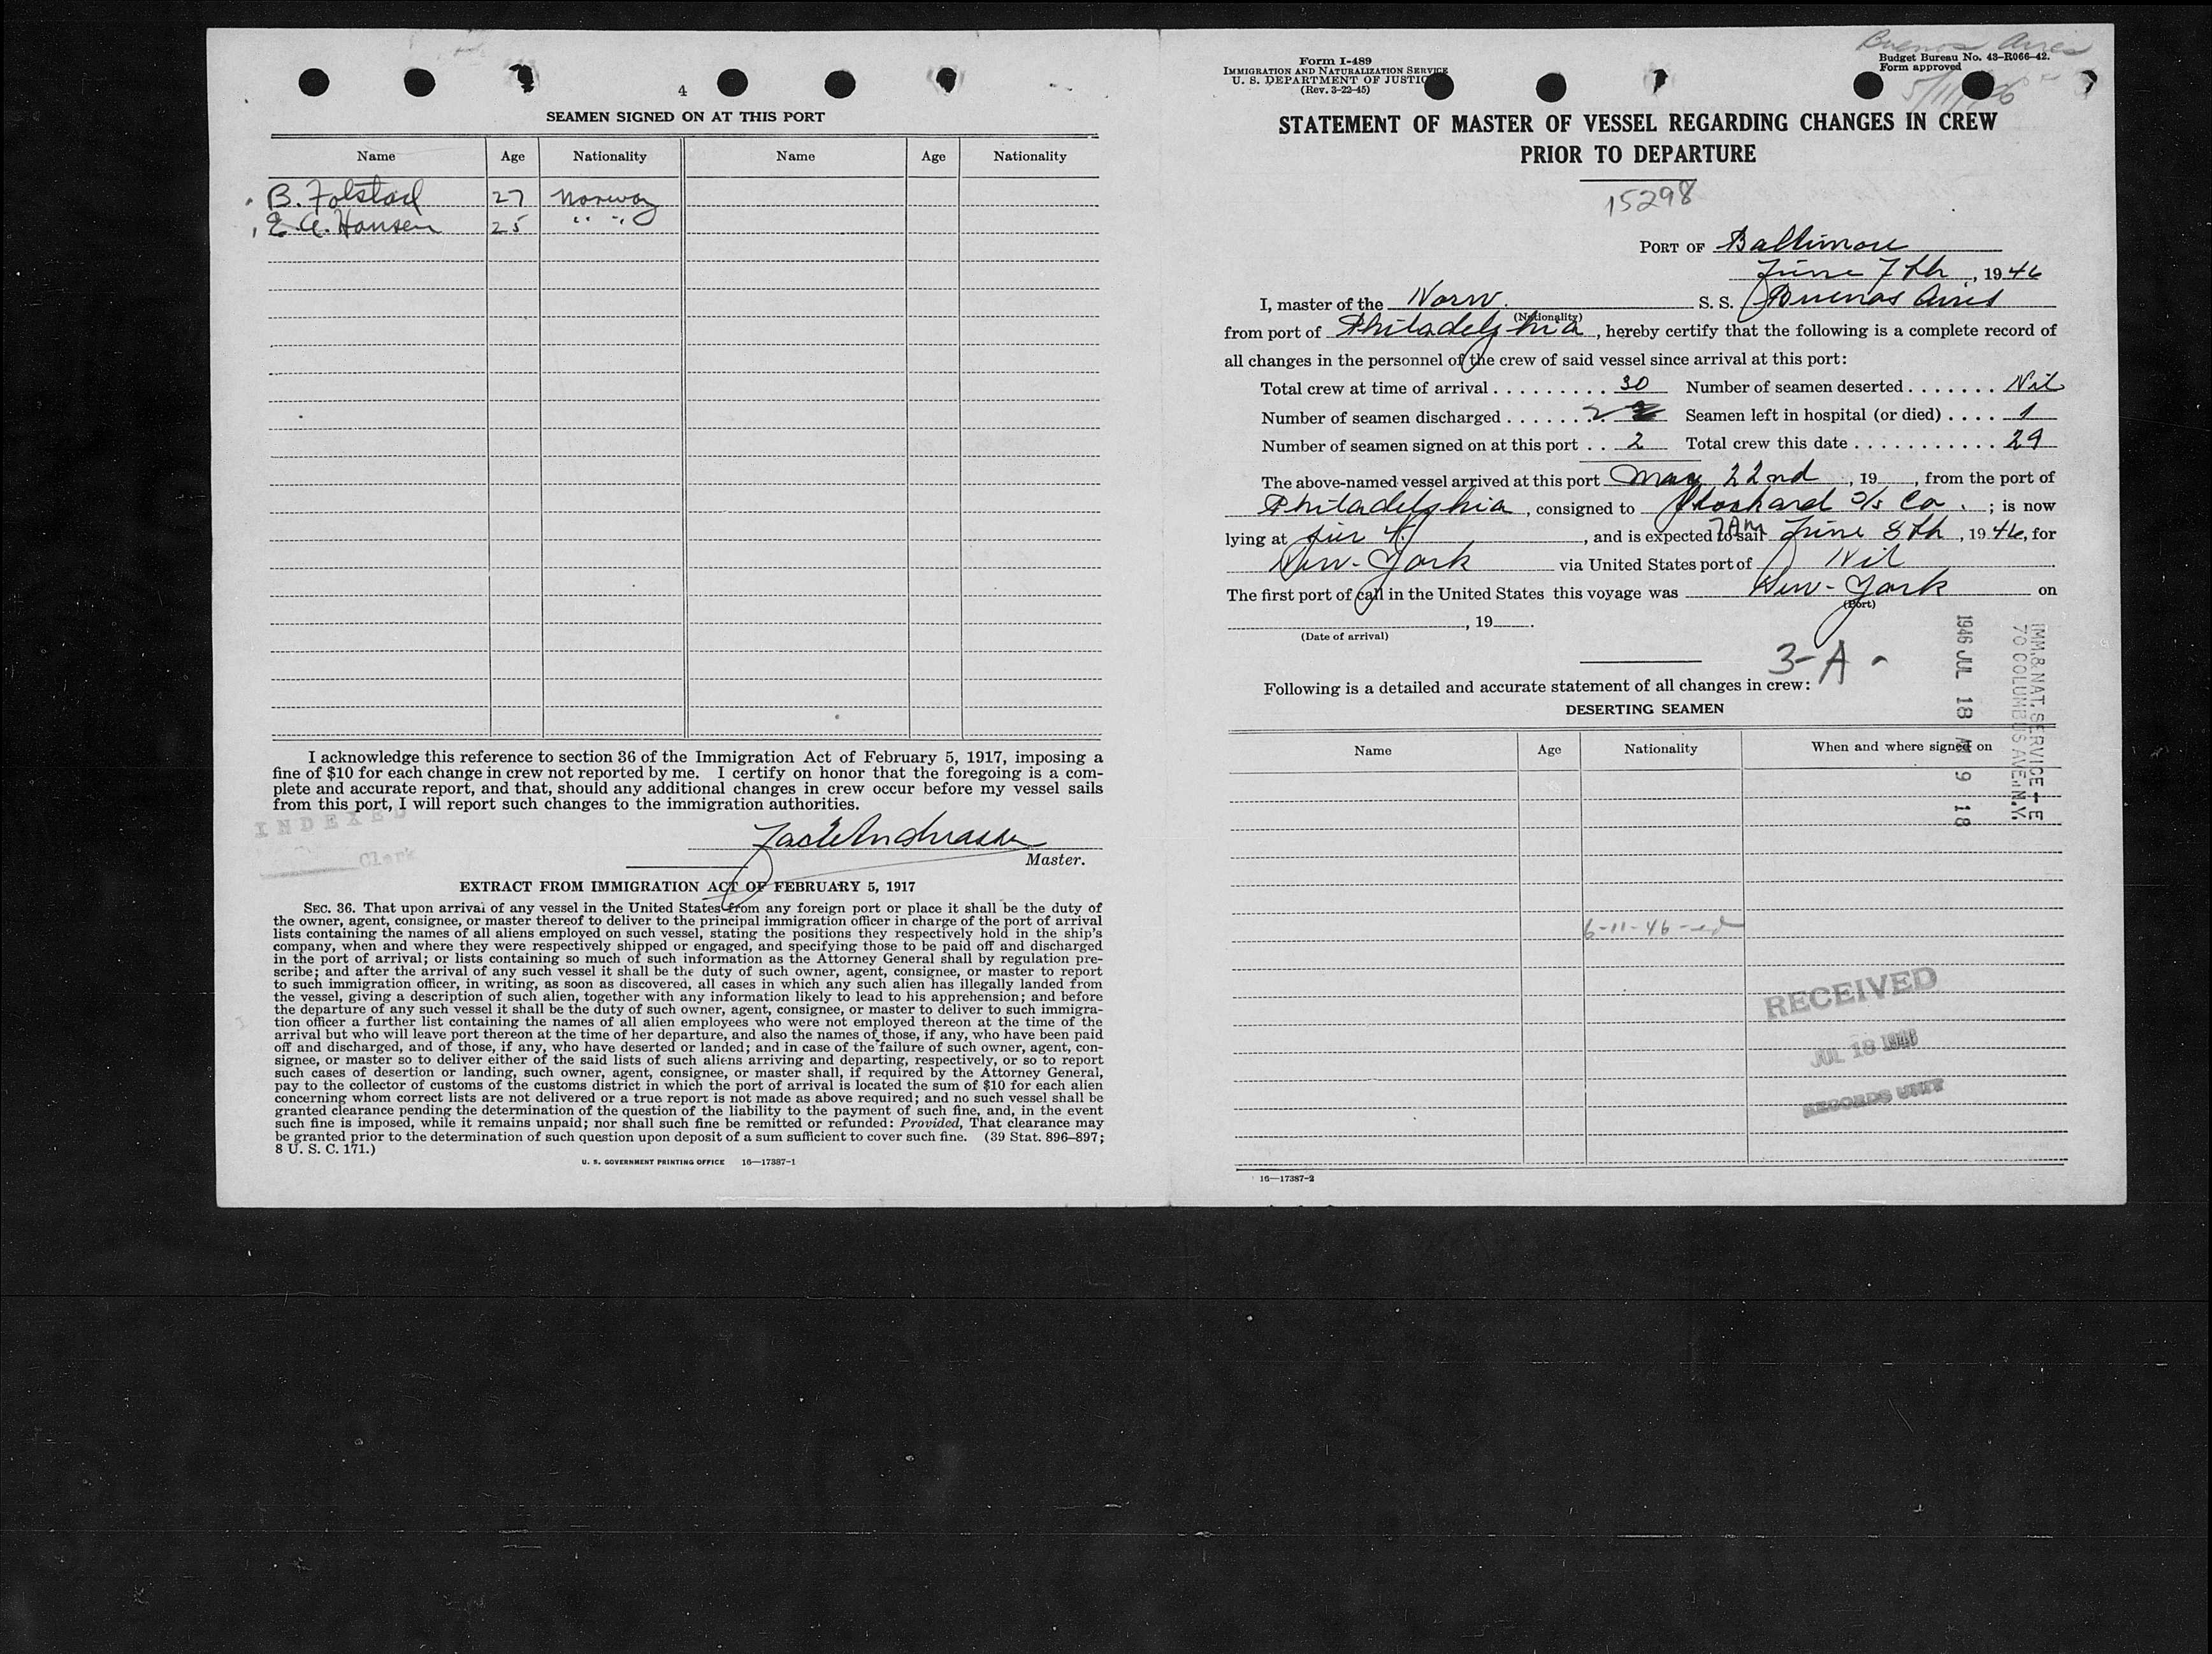 4
SEAMEN SIGNED ON AT THIS PORT
Name Age Nationality Name Age Nationality
B. Folstad 27 Norway
E. A. Hansen 25 " "
I acknowledge this reference to section 36 of the Immigration Act of February 5, 1917, imposing a
fine of $10 for each change in crew not reported by me. I certify on honor that the foregoing is a com-
plete and accurate report, and that, should any additional changes in crew occur before my vessel sails
from this port, I will report such changes to the immigration authorities.
INDEXED
Clerk
Master.
EXTRACT FROM IMMIGRATION ACT OF FEBRUARY 5, 1917
SEC. 36. That upon arrival of any vessel in the United States from any foreign port or place it shall be the duty of
the owner, agent, consignee, or master thereof to deliver to the principal immigration officer in charge of the port of arrival
lists containing the names of all aliens employed on such vessel, stating the positions they respectively hold in the ship's
company, when and where they were respectively shipped or engaged, and specifying those to be paid off and discharged
in the port of arrival; or lists containing so much of such information as the Attorney General shall by regulation pre-
scribe; and after the arrival of any such vessel it shall be the duty of such owner, agent, consignee, or master to report
to such immigration officer, in writing, as soon as discovered, all cases in which any such alien has illegally landed from
the vessel, giving a description of such alien, together with any information likely to lead to his apprehension; and before
the departure of any such vessel it shall be the duty of such owner, agent, consignee, or master to deliver to such immigra-
tion officer a further list containing the names of all alien employees who were not employed thereon at the time of the
arrival but who will leave port thereon at the time of her departure, and also the names of those, if any, who have been paid
off and discharged, and of those, if any, who have deserted or landed; and in case of the failure of such owner, agent, con-
signee, or master so to deliver either of the said lists of such aliens arriving and departing, respectively, or so to report
such cases of desertion or landing, such owner, agent, consignee, or master shall, if required by the Attorney General,
pay to the collector of customs of the customs district in which the port of arrival is located the sum of $10 for each alien
concerning whom correct lists are not delivered or a true report is not made as above required; and no such vessel shall be
granted clearance pending the determination of the question of the liability to the payment of such fine, and, in the event
such fine is imposed, while it remains unpaid; nor shall such fine be remitted or refunded: Provided, That clearance may
be granted prior to the determination of such question upon deposit of a sum sufficient to cover such fine. (39 Stat. 896–897;
8 U. S. C. 171.)
U. S. GOVERNMENT PRINTING OFFICE 16—17387-1
Buenos Aires
Form I-489
IMMIGRATION AND NATURALIZATION SERVICE
U. S. DEPARTMENT OF JUSTICE
(Rev. 3-22-45)
Budget Bureau No. 43-R066-42.
Form approved
STATEMENT OF MASTER OF VESSEL REGARDING CHANGES IN CREW
PRIOR TO DEPARTURE
15298
PORT OF Baltimore
June 7th, 1946
I, master of the Norw. S. S. Buenos Aires
(Nationality)
from port of Philadelphia, hereby certify that the following is a complete record of
all changes in the personnel of the crew of said vessel since arrival at this port:
Total crew at time of arrival . . . . . . . . . 30 Number of seamen deserted . . . . . . . Nil
Number of seamen discharged . . . . . . . 2 Seamen left in hospital (or died) . . . . 1
Number of seamen signed on at this port . . 2 Total crew this date . . . . . . . . . . . . 29
The above-named vessel arrived at this port May 22nd, 19 , from the port of
Philadelphia, consigned to S/S Co. ; is now
lying at pier 4, and is expected to sail 7 AM June 8th, 1946, for
New-York via United States port of Nil
The first port of call in the United States this voyage was New-York on
(Port)
, 19 .
(Date of arrival)
3-A -
Following is a detailed and accurate statement of all changes in crew:
DESERTING SEAMEN
Name Age Nationality When and where signed on
IMM. & NAT. SERVICE
70 COLUMBUS AVE., N.Y.
1946 JUL 18 AM 9 18
6-11-46
RECEIVED
JUL 18 1946
RECORDS UNIT
16—17387-2